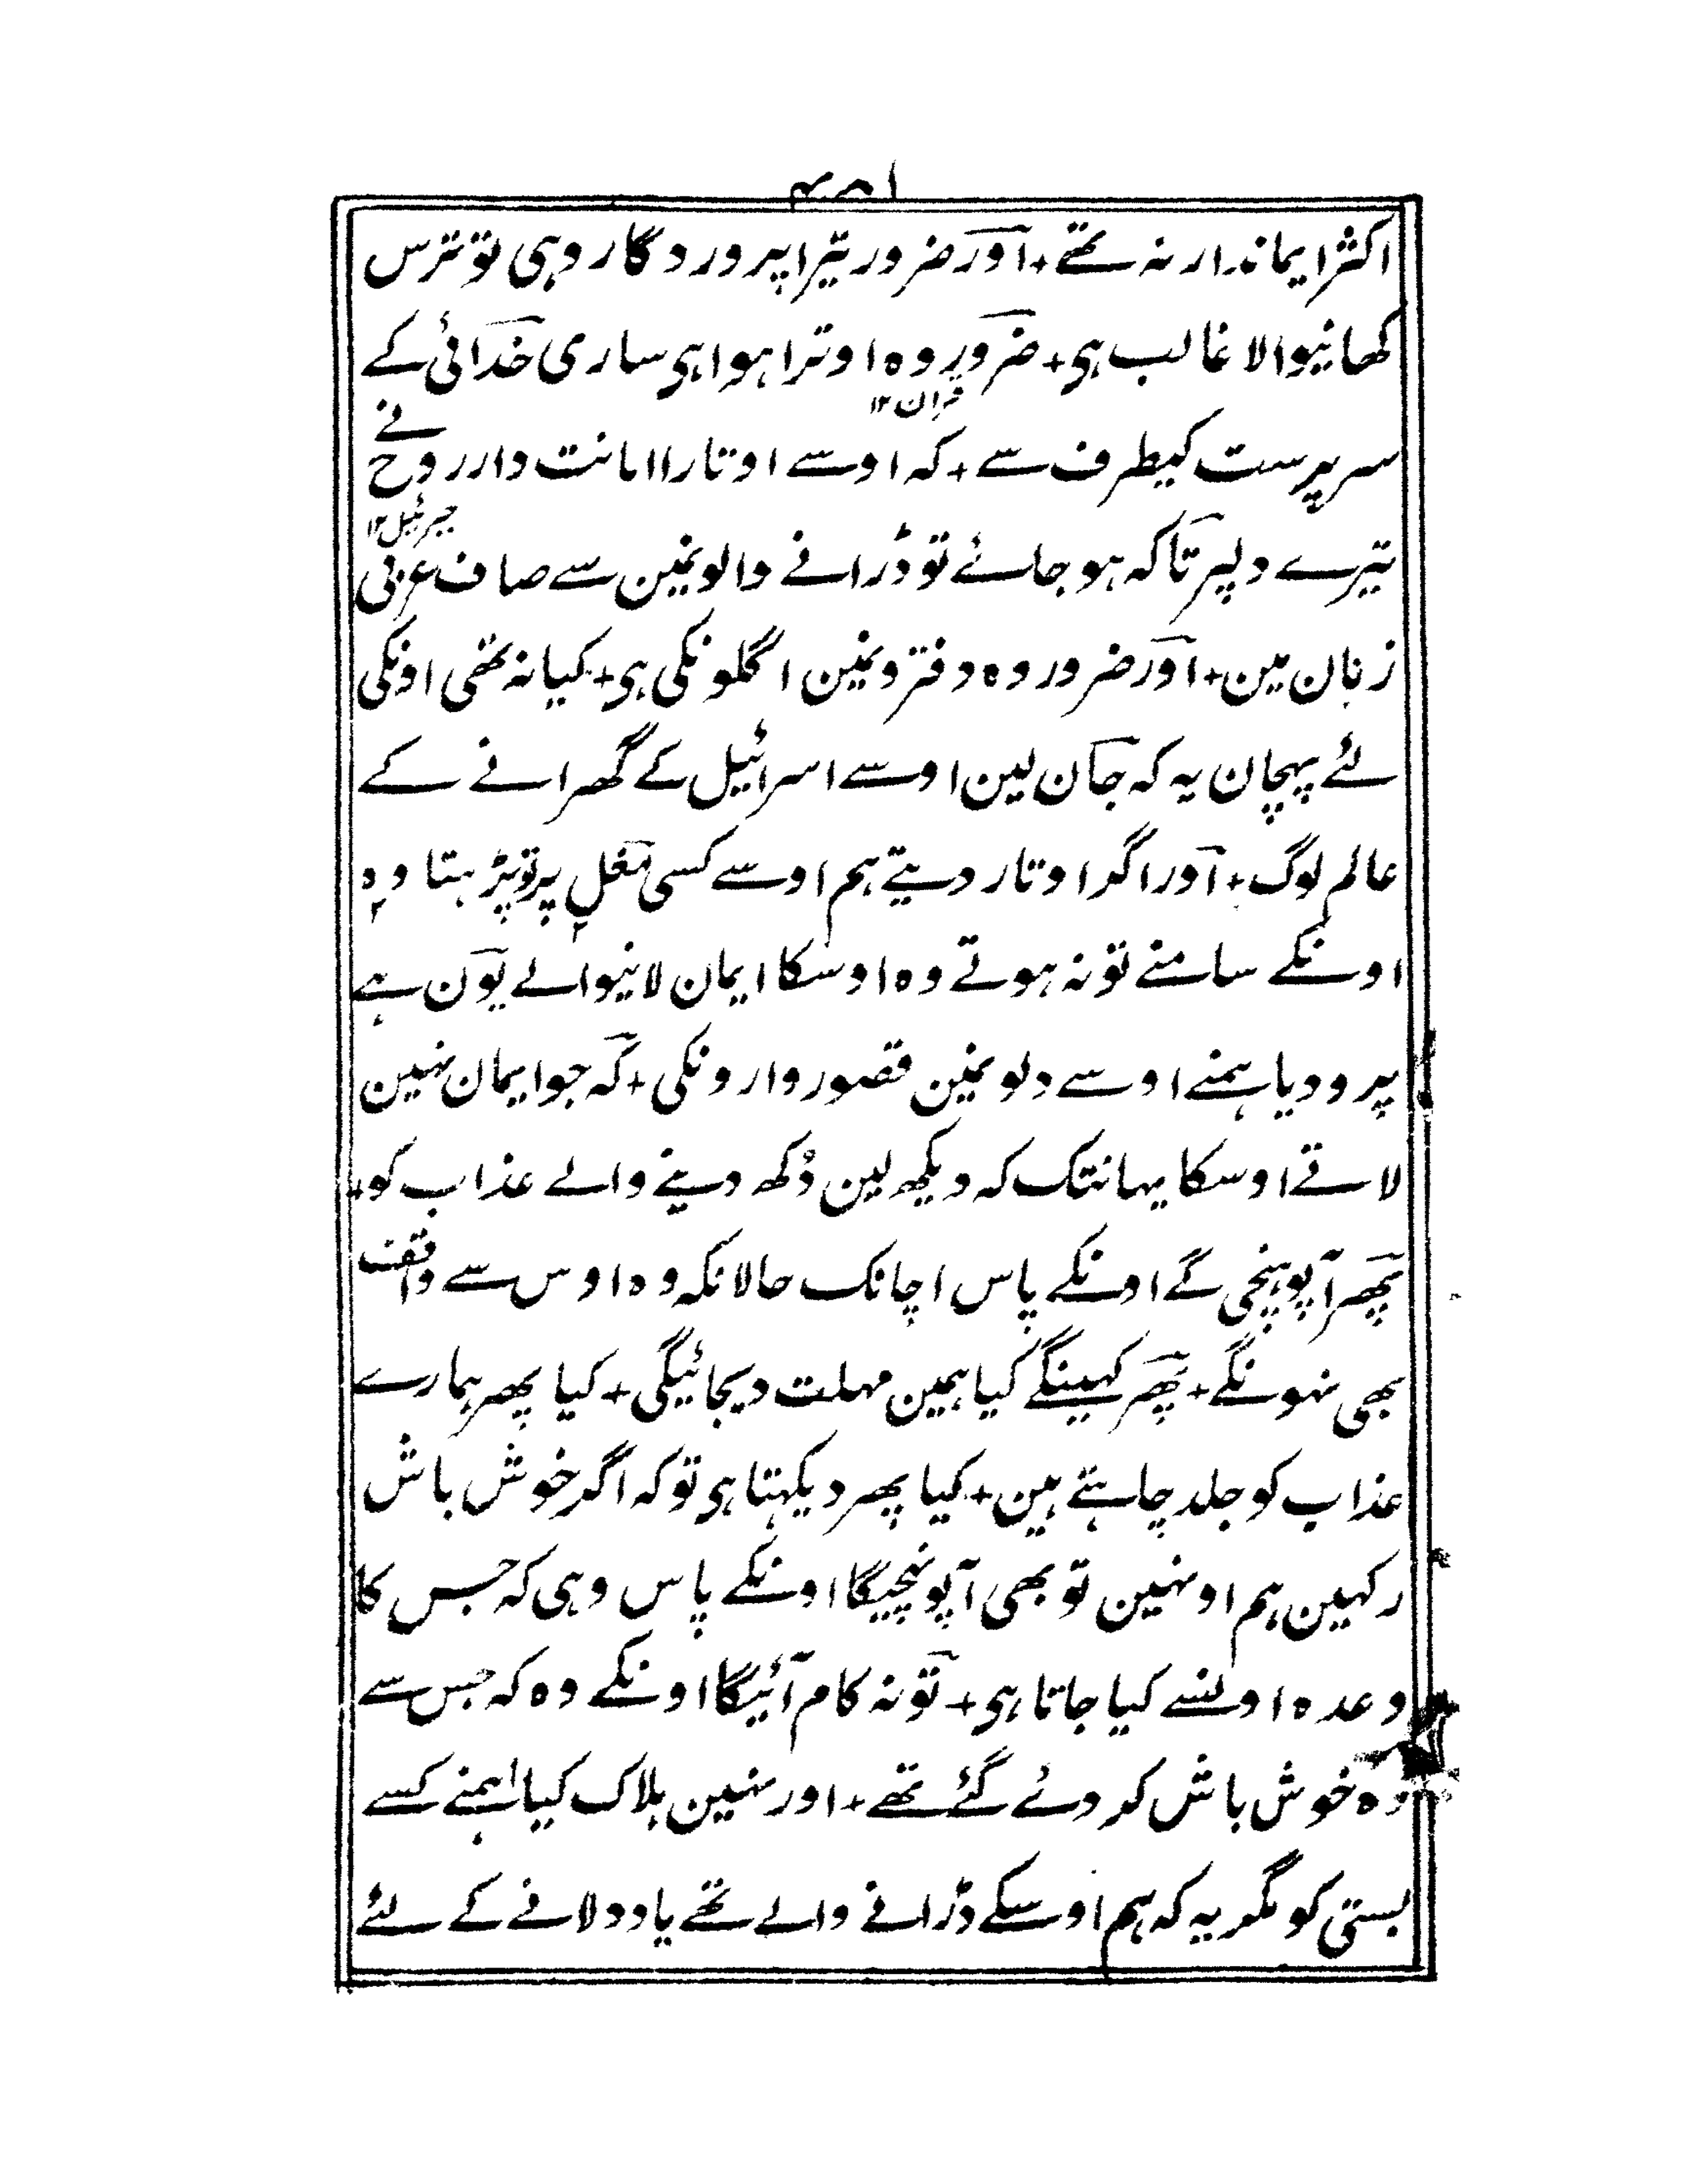 اکثر ایماندار نہ تھے + آور ضرور تیرا پروردگار وہی تو ترس
کھانیوالا غالب ہی + ضرور وہ اوترا ہوا ہی ساری خدائی کے
قران ۱۲
سرپرست کیطرف سے + کہ اوسے اوتارا امانت دار روح نے
جبرئیل ۱۲
تیرے دلپر تاکہ ہو جائے تو ڈرانے والونمین سے صاف عربی
زبان مین + آور ضرور وہ دفترونمین اگلونکی ہی + کیا نہ تھی اونکی
لئے پہچان یہ کہ جان لین اوسے اسرائیل کے گھرانے کے
عالم لوگ + آور اگر اوتار دیتے ہم اوسے کسی مغل پر تو پڑہتا وہ
اونکے سامنے تو نہ ہوتے وہ اوسکا ایمان لانیوالے یون ہے
پرودیا ہمنے اوسے دلونمین قصوروارونکی + کہ جو ایمان نہین
لاتے اوسکا یہانتک کہ دیکھ لین دُکھ دینے والے عذاب کو +
پھر آپوہنچی گے اونکے پاس اچانک حالانکہ وہ اوس سے واقف
بھی نہونگے + پھر کہینگے کیا ہمین مہلت دیجائیگی + کیا پھر ہمارے
عذاب کو جلد چاہتے ہین + کیا پھر دیکہتا ہی تو کہ اگر خوش باش
رکہین ہم اونہین تو بھی آپونہچیگا اونکے پاس وہی کہ جس کا
وعدہ اونسے کیا جاتا ہی + تو نہ کام آئیگا اونکے وہ کہ جس سے
وہ خوش باش کر دئے گئے تھے + اور نہین ہلاک کیا ہمنے کسے
بستی کو مگر یہ کہ ہم اوسکے ڈرانے والے تھے یاد دلانے کے لئے